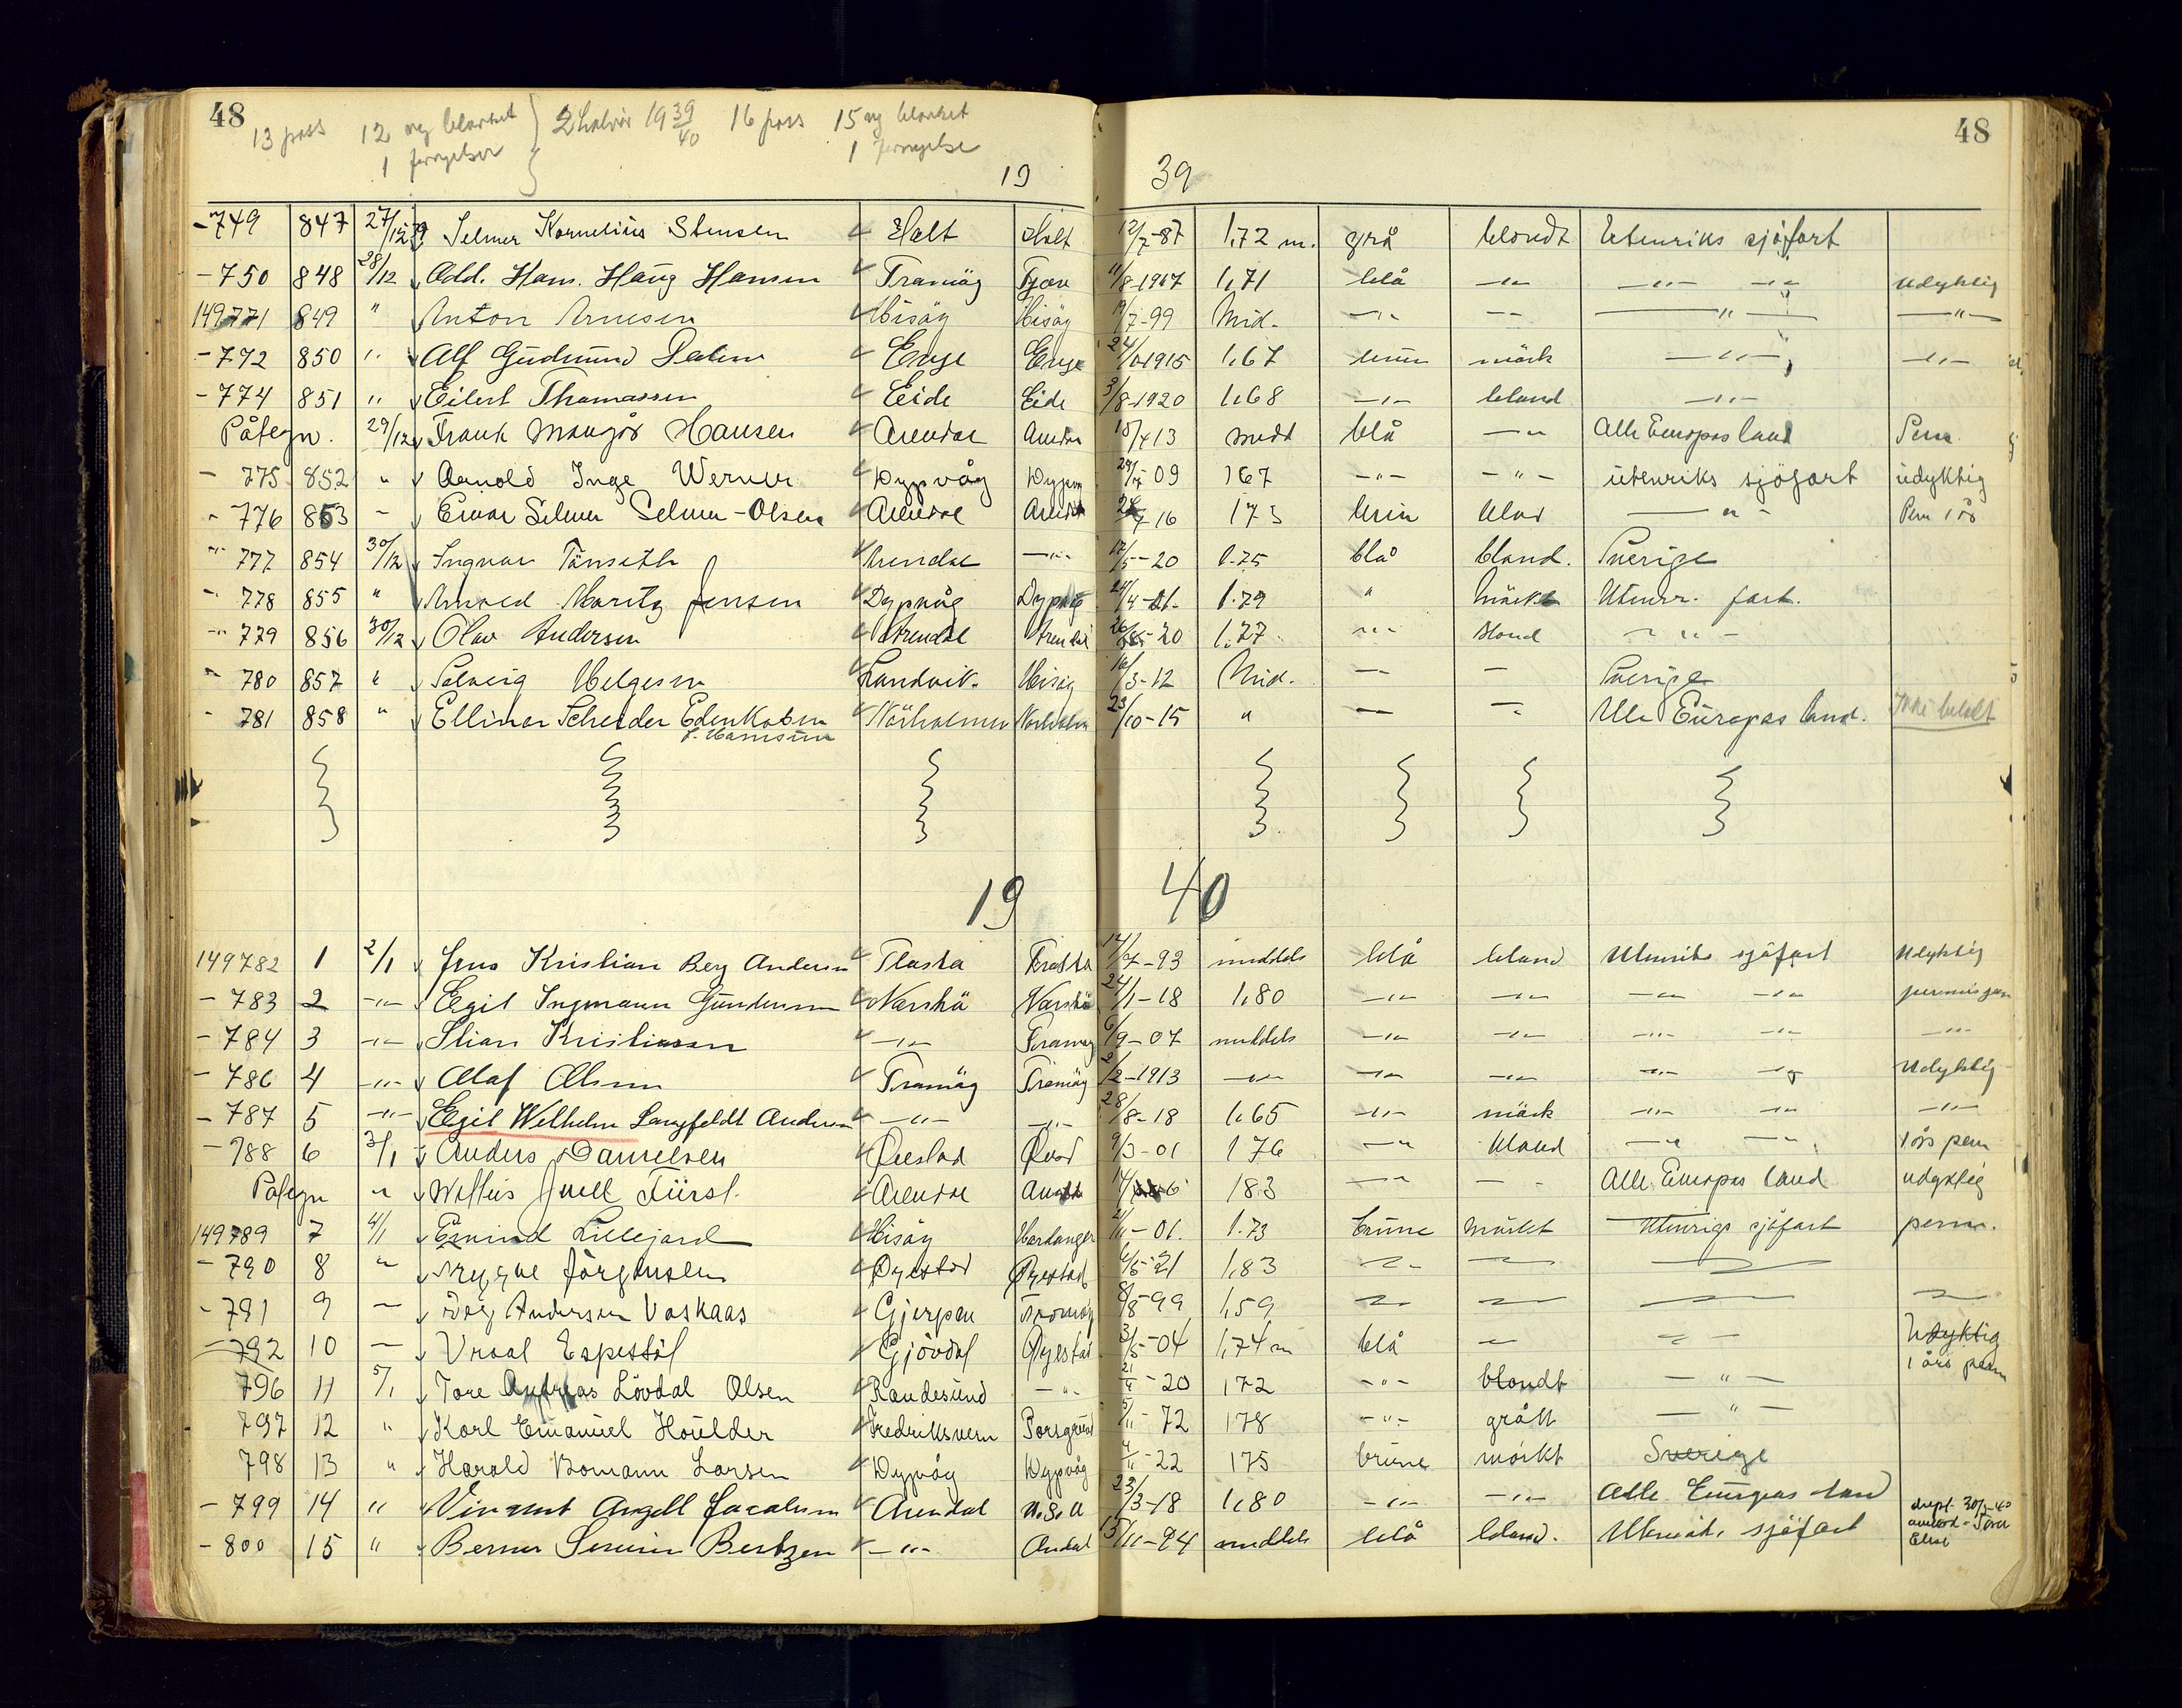 48
13 pass 12 ny blanket 1 fornyelser } 2 halvår 1939/40 16 pass 15 ny blanket 1 fornyelse
48
19 39
-749 847 27/12 39 Selmer Kornelius Stensen Holt Holt 12/7-87 1,72 m. grå blondt Utenriks sjøfart
-750 848 28/12 Odd. Hans. Haug Hansen Tromøy Tjøm 11/8-1917 1,71 blå -"- -"- -"- Udyktig
149771 849 " Anton Arnesen Hisøy Hisøy 19/7-99 Mid. -"- -"- -"- -"-
-772 850 " Alf Gudmund Enge Enge 24/10-1915 1,67 brun mörk -"- -"-
-774 851 " Eilert Thomassen Eide Eide 3/8-1920 1,68 -"- blond -"-
Påtegn. 29/12 Frank Hansen Arendal Arendal 15/4-13 midd blå -"- Alle Europas land Perm.
- 775 852 " Arnold Inge Werner Dypvåg Dypvåg 29/4-09 167 -"- -"- utenriks sjöfart udyktig
- 776 853 - Einar Selmer Selmer-Olsen Arendal Arendal 16 173 brun blond -"- Perm 1 år
-"- 777 854 30/12 Ingvar Tånseth Arendal -"- 17/5-20 1.75 blå blond. Sverige
-"- 778 855 " Arnold Moritz Jensen Dypvåg Dypvåg 24/4-21. 1.79 " mörkt Utenr. fart.
-"- 779 856 30/12 Olav Andersen Arendal Arendal 20 1.77 -"- blond -"-
-"- 780 857 " Solveig Helgesen Landvik. Hisøy 16/3-12 Mid. - - Sverige
- 781 858 " Ellinor Schneider Edenkoben f. Hamsun Nörholmen Norholm 23/10-15 " - - Alle Europas land. Ikke betalt
19 40
149782 1 2/1 Jens Kristian Berg Andersen Flosta Flosta 14/7-93 middels blå blond Utenriks sjøfart Udyktig
- 783 2 -"- Egil Ingmann Gundersen Narskå Narskå 24/1-18 1,80 -"- -"- -"- -"- permisjon
- 784 3 -"- Stian Kristiansen -"- Tromøy 6/9-07 middels -"- -"- -"- -"- -"-
- 786 4 -"- Olaf Olsen Tromøy Tromøy 2/2-1913 -"- -"- -"- -"- -"- Udyktig
- 787 5 -"- Egil Wilhelm Langfeldt Andersen -"- -"- 28/8-18 1,65 -"- mörk -"- -"- -"-
- 788 6 3/1 Anders Danielsen Øiestad 9/3-01 176 -"- blond -"- -"- 1 års perm
Påtegn " Juell Fürst. Arendal 183 -"- - Alle Europas land udyktig
149789 7 4/1 Emind Lillejord Hisøy Hardanger 2/11-01. 1.73 brune mörkt Utenriks sjöfart perm.
- 790 8 " Trygve Jörgensen Öyestad Öyestad 6/5-21 1,83
- 791 9 - Dag Andersen Voskaas Gjerpen Tromøy 8/8-99 1,59
- 792 10 - Vraal Espestöl Gjövdal Öyestad 3/5-04 1,74 m blå - - Udyktig
796 11 5/1 Tore Andreas Lövdal Olsen Randesund -"- 21/4-20 172 -"- blondt -"- 1 års perm
797 12 " Karl Emanuel Houlder Fredriksvern Porsgrund 5/11-72 178 -"- grått -"-
798 13 " Harald Bomann Larsen Dypvåg Dypvåg 4/11-22 175 brune mörkt Sverige
- 799 14 " Vincent Angell Jacobsen Arendal U.S.A 23/3-18 1,80 -"- -"- Alle Europas land
- 800 15 " Berner Severin Bertzen -"- Arendal 15/11-94 middels blå blond. Utenriks sjöfart